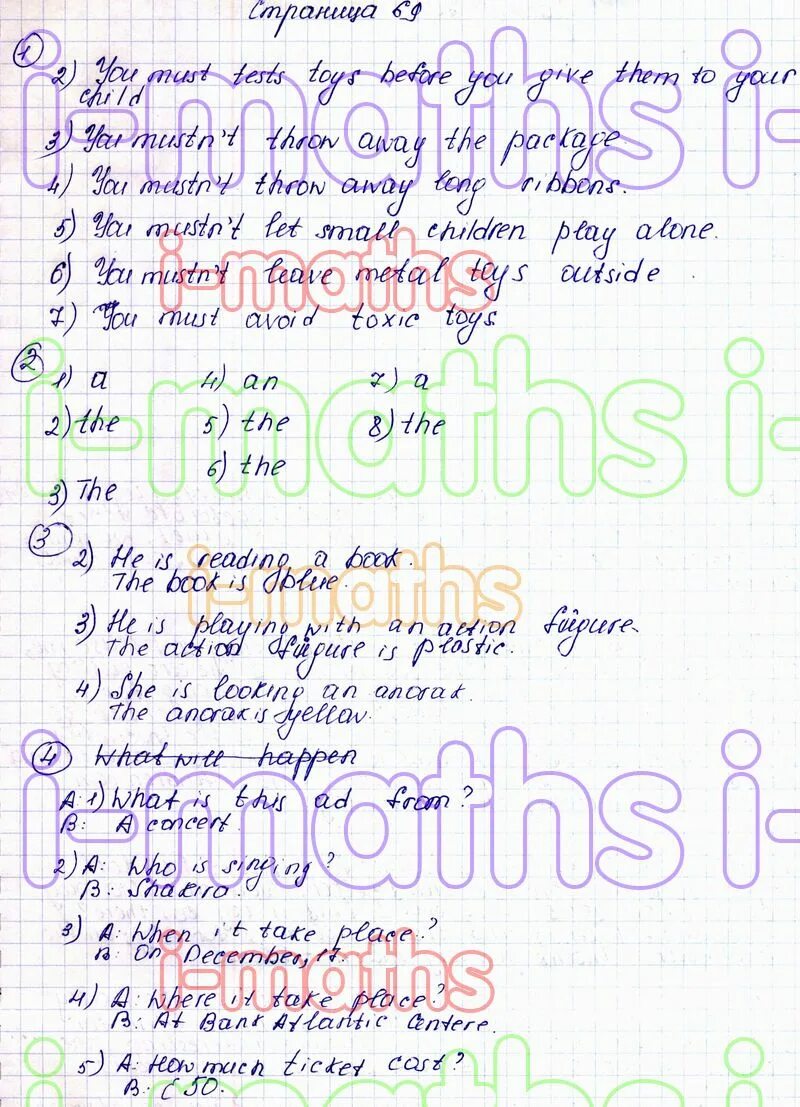 Страница 69
1
2) You must tests toys before you give them to your
child
3) You mustn't throw away the package.
4) You mustn't throw away long ribbons.
5) You mustn't let small children play alone.
6) You mustn't leave metal toys outside.
7) You must avoid toxic toys.
2
1) a 4) an 7) a
2) the 5) the 8) the
6) the
3) The
3
2) He is reading a book.
The book is blue.
3) He is playing with an action fuigure.
The action fuigure is plastic.
4) She is looking an anorak.
The anorak is yellow.
4 What will happen
A: 1) What is this ad from?
B: A concert.
2) A: Who is singing?
B: Shakira.
3) A: When it take place?
B: On December, 17.
4) A: Where it take place?
B: At Bank Atlantic Centere.
5) A: How much ticket cost?
B: £50.
i-maths
i-maths
i-maths
i-maths
i-maths
i-maths
i-maths